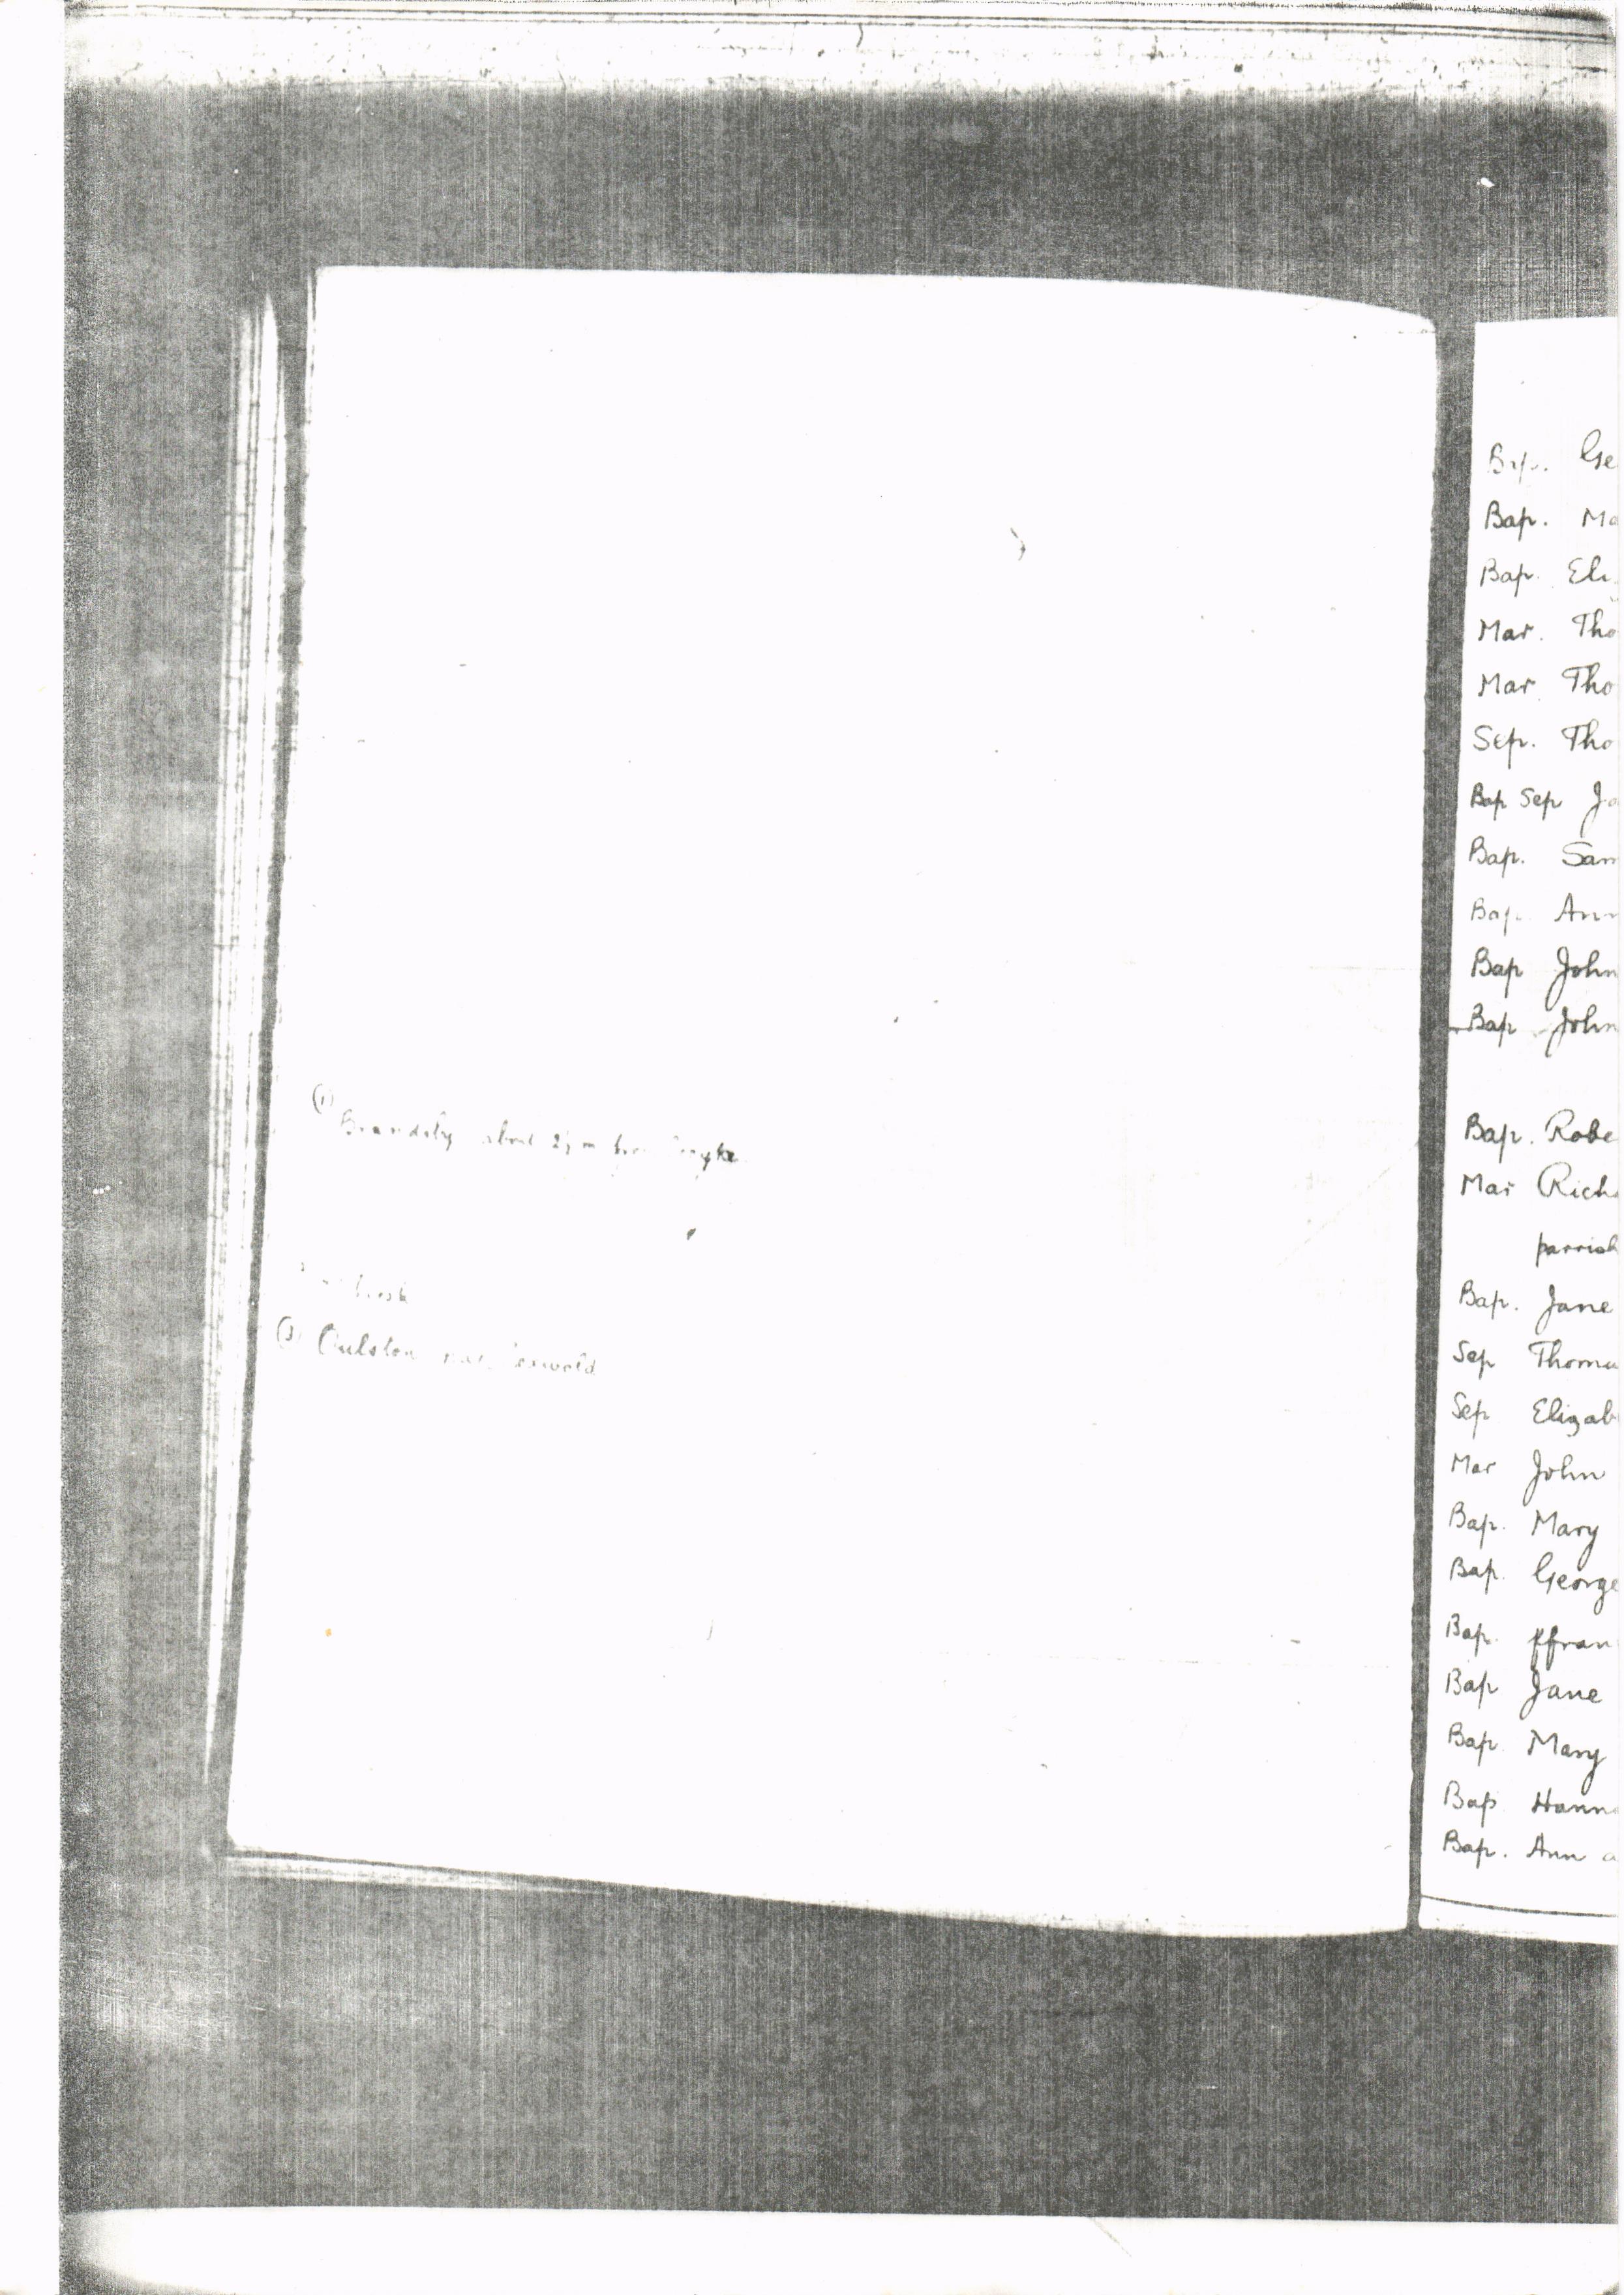 (1)
Brandsby about 2½ m
(3) Oulston
Bap. Ge
Bap. Ma
Bap. Eli
Mar. Tho
Mar. Tho
Sep. Tho
Bap Sep Jo
Bap. Sam
Bap. Ann
Bap John
Bap John
Bap. Robe
Mar Rich
parrish
Bap. Jane
Sep Thoma
Sep Elizab
Mar John
Bap. Mary
Bap. George
Bap. ffran
Bap Jane
Bap Mary
Bap Hann
Bap. Ann a